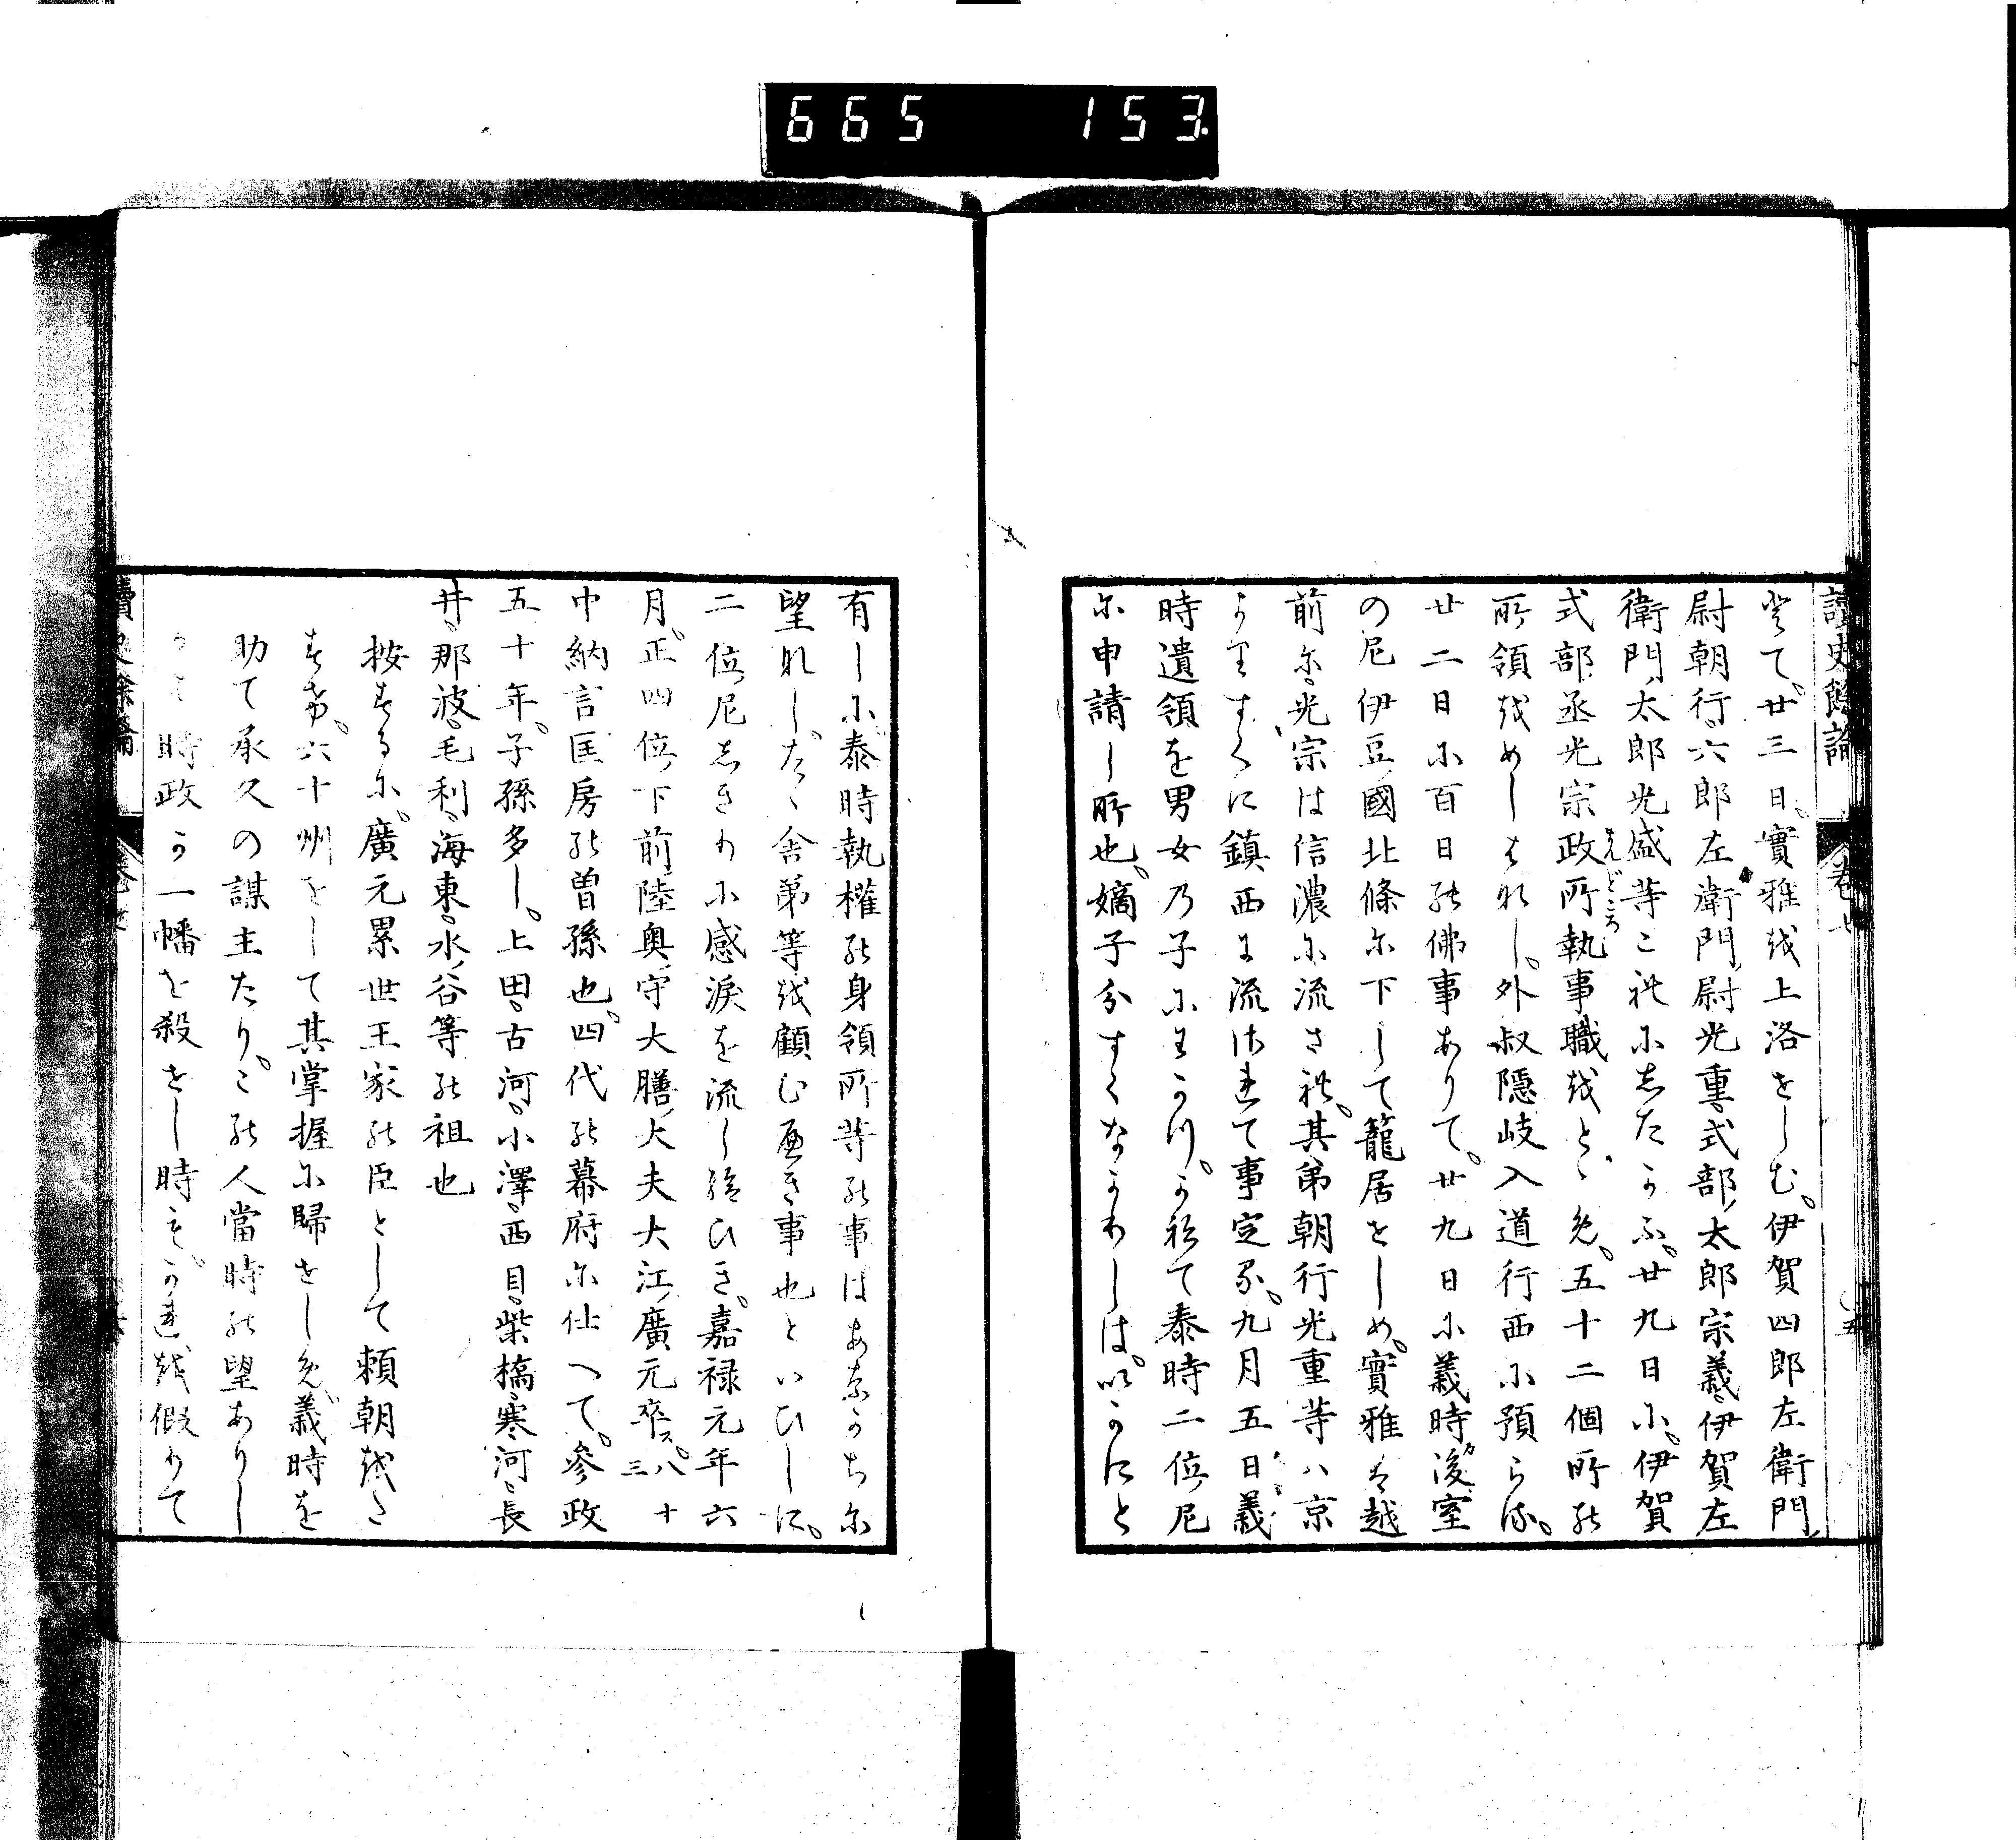 665 153
讀史餘論 卷七
とて。廿三日。實雅を上洛せしむ。伊賀四郎左衛門
尉朝行。六郎左衛門尉光重。式部太郎宗義。伊賀左
衛門太郎光盛等これにしたかふ。廿九日に。伊賀
式部丞光宗政所執事職をとゝめ。五十二個所の
まんどころ
所領をめしはなし。外叔隱岐入道行西に預らる。
廿二日に百日の佛事ありて。廿九日に義時後室
の尼伊豆國北條に下して籠居せしめ。實雅は越
前に。光宗は信濃に流さる。其弟朝行光重等ハ京
よりすくに鎮西に流されて事定る。九月五日義
時遺領を男女乃子にわかつ。かねて泰時二位尼
に申請し所也。嫡子分すくなかりしは。いかにと
有しに。泰時執權の身領所等の事はあなかちに
望なし。たゝ舎弟等を顧む可き事也といひしに。
二位尼しきりに感涙を流し給ひき。嘉禄元年六
月。正四位下前陸奥守大膳大夫大江廣元卒ス。八十
三
中納言匡房の曽孫也。四代の幕府に仕へて。參政
五十年。子孫多し。上田。古河。小澤。西目。柴橋。寒河。長
井。那波。毛利。海東。水谷等の祖也
按するに。廣元累世王家の臣として頼朝をた
すけ。六十州をして其掌握に歸せしめ。義時を
助て承久の謀主たり。この人當時の望ありし
時政か一幡を殺せし時も。かれを假りて